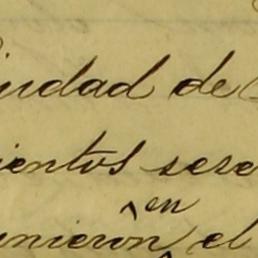 iudad de
ientos sese
en
unieron el